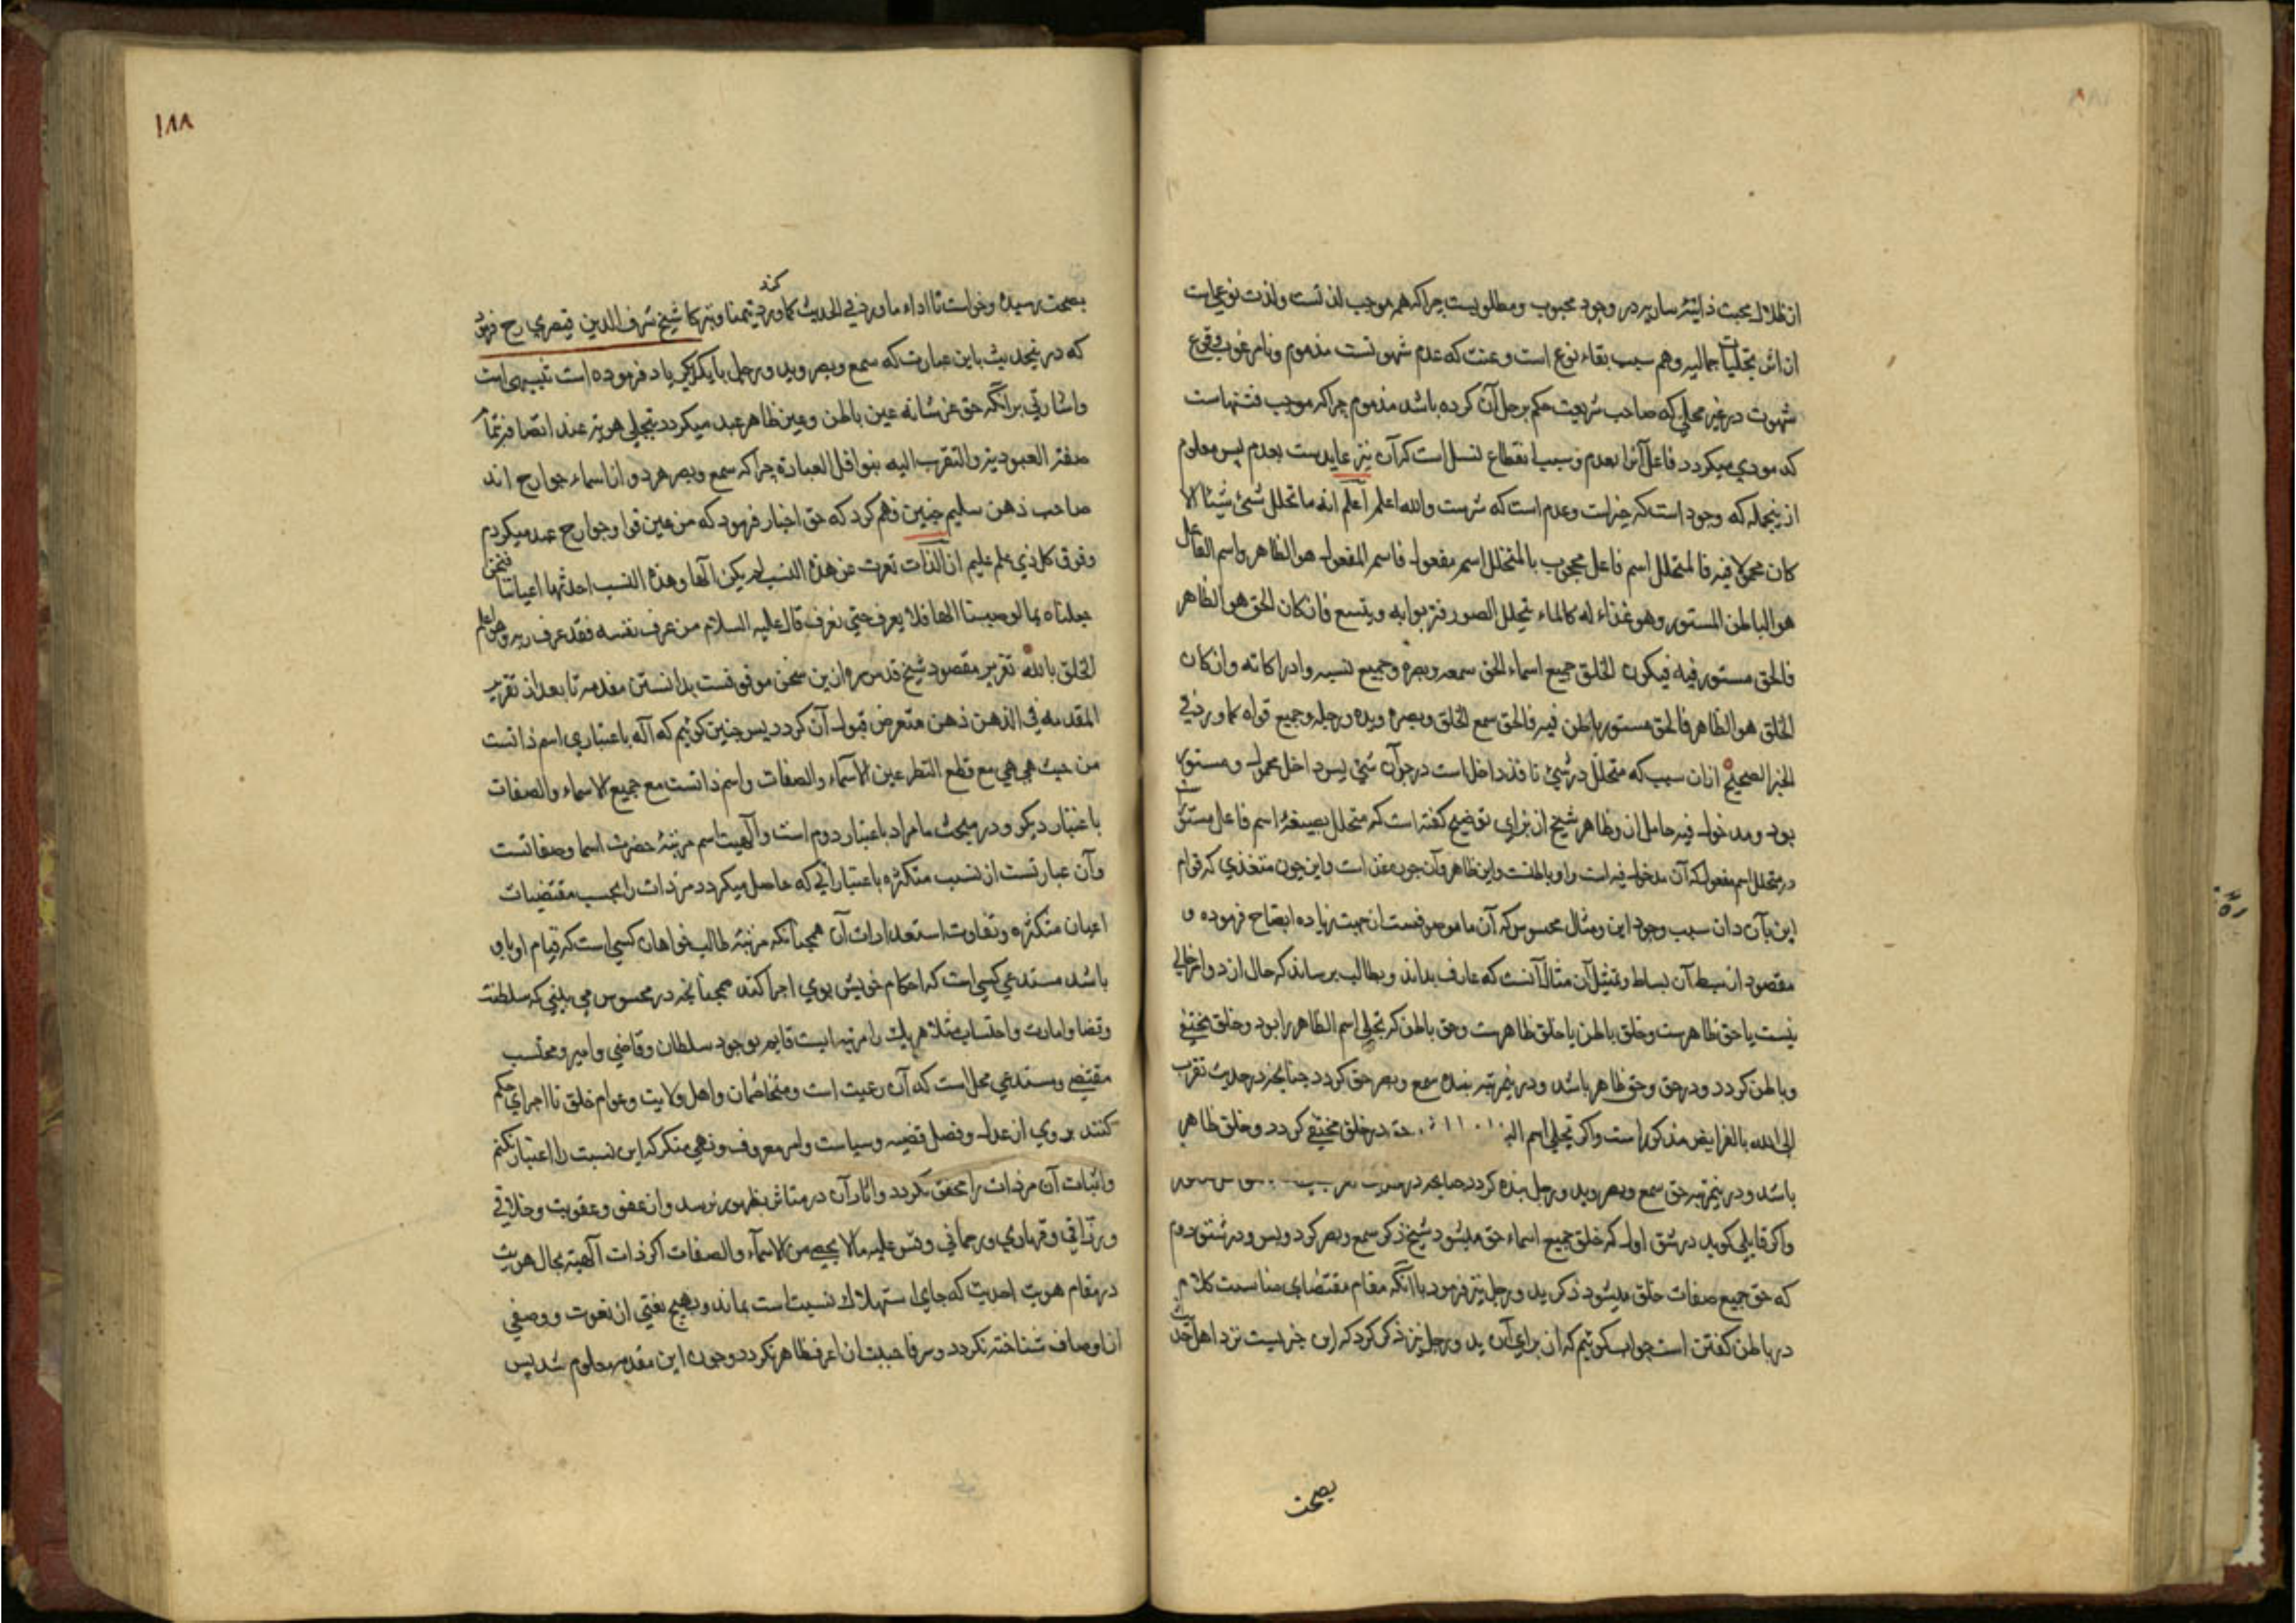 از ظلال محبت ذاتیّهٔ ساریه در وجود محبوب ومطلوبست چراکه هم موجب لذّتست ولذت نوعی است
از اثر تجلّیات جمالیه وهم سبب بقاء نوع است وعنت که عدم شهوتست مذموم ونامرغوب وقوع
شهوت در غیر محلی که صاحب شریعت حکم بر حل آن کرده باشد مذموم چراکه موجب فتنهاست
که مودی میکردد فاعل آنرا بعدم وسبب انقطاع نسل است که آن نیز عایدست بعدم پس معلوم
ازینجمله که وجود است که خیرات وعدم است که شرست والله اعلم اعلم انه ما تخلل شیٔ شیئا الا
کان محمولا فیه فالمتخلل اسم فاعل محجوب بالمتخلل اسم مفعول فاسم المفعول هو الظاهر واسم الفاعل
هو الباطن المستور وهو غذاء له کالماء یتخلل الصوفه فتربو به ویتسع فان کان الحق هو الظاهر
فالخلق مستور فیه فیکون الخلق جمیع اسماء الحق سمعه وبصره وجمیع نسبه وادراکاته وان کان
الخلق هو الظاهر فالحق مستور باطن فیه فالحق سمع الخلق وبصره ویده ورجله وجمیع قواه کما ورد فی
الخبر الصحیح ازان سبب که متخلل در شیٔ نافذ داخل است در جوآن شیٔ پس داخل محمول ومستور
بود ومدخول فیه حامل آن وظاهر شیخ از برای توضیح کفته است که متخلل بصیغهٔ اسم فاعل مستور
در متخلل اسم مفعول که آن مدخول فیه است واو باطنست واین ظاهر وآن چون غذا است واین چون متغذی که قوام
این بآن دان سبب وجود این ومثال محسوس که آن ما وصوفست از جهت زیاده ایضاح فرموده و
مقصود از بسط آن بساط وتمثیل آن مثال آنست که عارف بداند وبطالب برساند که حال از دو امر خالی
نیست یا حق ظاهرست وخلق باطن یا خلق ظاهرست وحق باطن کر تجلی اسم الظاهر را بود وخلق مختفی
وباطن کردد ودر حق وحق ظاهر باشد ودرین مرتبه بنده سمع وبصر حق کردد چنانچه در حدیث تقرب
الی الله بالفرایض مذکور است واکر تجلی اسم در خلق مختفی کردد وخلق ظاهر
باشد ودرین مرتبه حق سمع وبصر وید ورجل بنده کردد چنانچه در
واکر قایلی کوید در شق اول که خلق جمیع اسماء حق میشود شیخ ذکر سمع وبصر کرد وبس ودر شق دوم
که حق جمیع صفات خلق میشود ذکر ید ورجل نیز فرمود با آنکه مقام مقتضای مناسبت کلام
در باطن کفتن است جواب کوئیم که از برای آن ید ورجل نیز ذکر کرد که این خبریست نزد اهل حدیث
بصحت
١٨٨
بصحت رسیده وخواست تا اداء ما ورد فی الحدیث کما ورد کند تیمّنا وتبرکا شیخ شرف الدین قیصری رح فرمود
که درینحدیث باین عبارت که سمع وبصر وید ورجل با یکدیکر یاد فرموده است تنبیهی است
واشارتی بر آنکه حق عز شانه عین باطن وعین ظاهر عبد میکردد بتجلی هویته عند اتصافه بتمام
صفة العبودیة والتقرب الیه بنوافل العبادة چراکه سمع وبصر هر دو از اسماء جوارح اند
صاحب ذهن سلیم چنین فهم کرد که حق اخبار فرمود که من عین قوا وجوارح عبد میکردم
وفوق کل ذی علم علیم ان الذات لو تعرت عن هذه النسب لم یکن الها وهذه النسب احدثتها اعیاننا فنحن
جعلناه بمالوهیتنا الها فلا یعرف حتی نعرف قال علیه السلام من عرف نفسه فقد عرف ربه وهو اعلم
الخلق بالله تقریر مقصود شیخ قدس سره ازین سخن موقوفست بدانستن مقدمه تا بعد از تقریر
المقدمه فی الذهن ذهن متعرض قبول آن کردد پس چنین کوئیم که آله باعتباری اسم ذاتست
من حیث هی هی مع قطع النظر عن الاسماء والصفات واسم ذاتست مع جمیع الاسماء والصفات
باعتبار دیکر ودر مبحث ما مراد باعتبار دوم است وآلهیت اسم مرتبهٔ حضرت اسما وصفاتست
وآن عبارتست از نسب متکثره باعتباراتی که حاصل میکردد مر ذات را بحسب مقتضیات
اعیان متکثره وتفاوت استعدادات آن همچنانکه مرتبه طالب خواهان کسی است که قیام او باو
باشد مستدعی کسی است که احکام خویش بوی اجرا کند همچنانچه در محسوس می بینی که سلطنت
وقضا وامارت واحتساب مثلا هر یک را مرتبه ایست قایم بوجود سلطان وقاضی وامیر ومحتسب
مقتضی ومستدعی محل است که آن رعیت است ومتخاصمان واهل ولایت وعوام خلق تا اجرای حکم
کنند بر وی از عدل وفصل قضیه وسیاست وامر معروف ونهی منکر که این نسبت را اعتبار نکنم
واثبات آن مر ذات را محقق نکردد واثار آن در متاثر بظهور نرسد واز عفو وعقوبت وخلاقی
ورزّاقی وقهاری ورحمانی وقس علیه ما لا یحصی من الاسماء والصفات اکر ذات آلهیه بحال هویت
در مقام هویت احدیت که جای استهلاک نسبت است بماند وبهیچ نعتی از نعوت ووصفی
از اوصاف شناخته نکردد وسر فاحببت ان اعرف ظاهر نکردد وچون این مقدمه معلوم شد پس